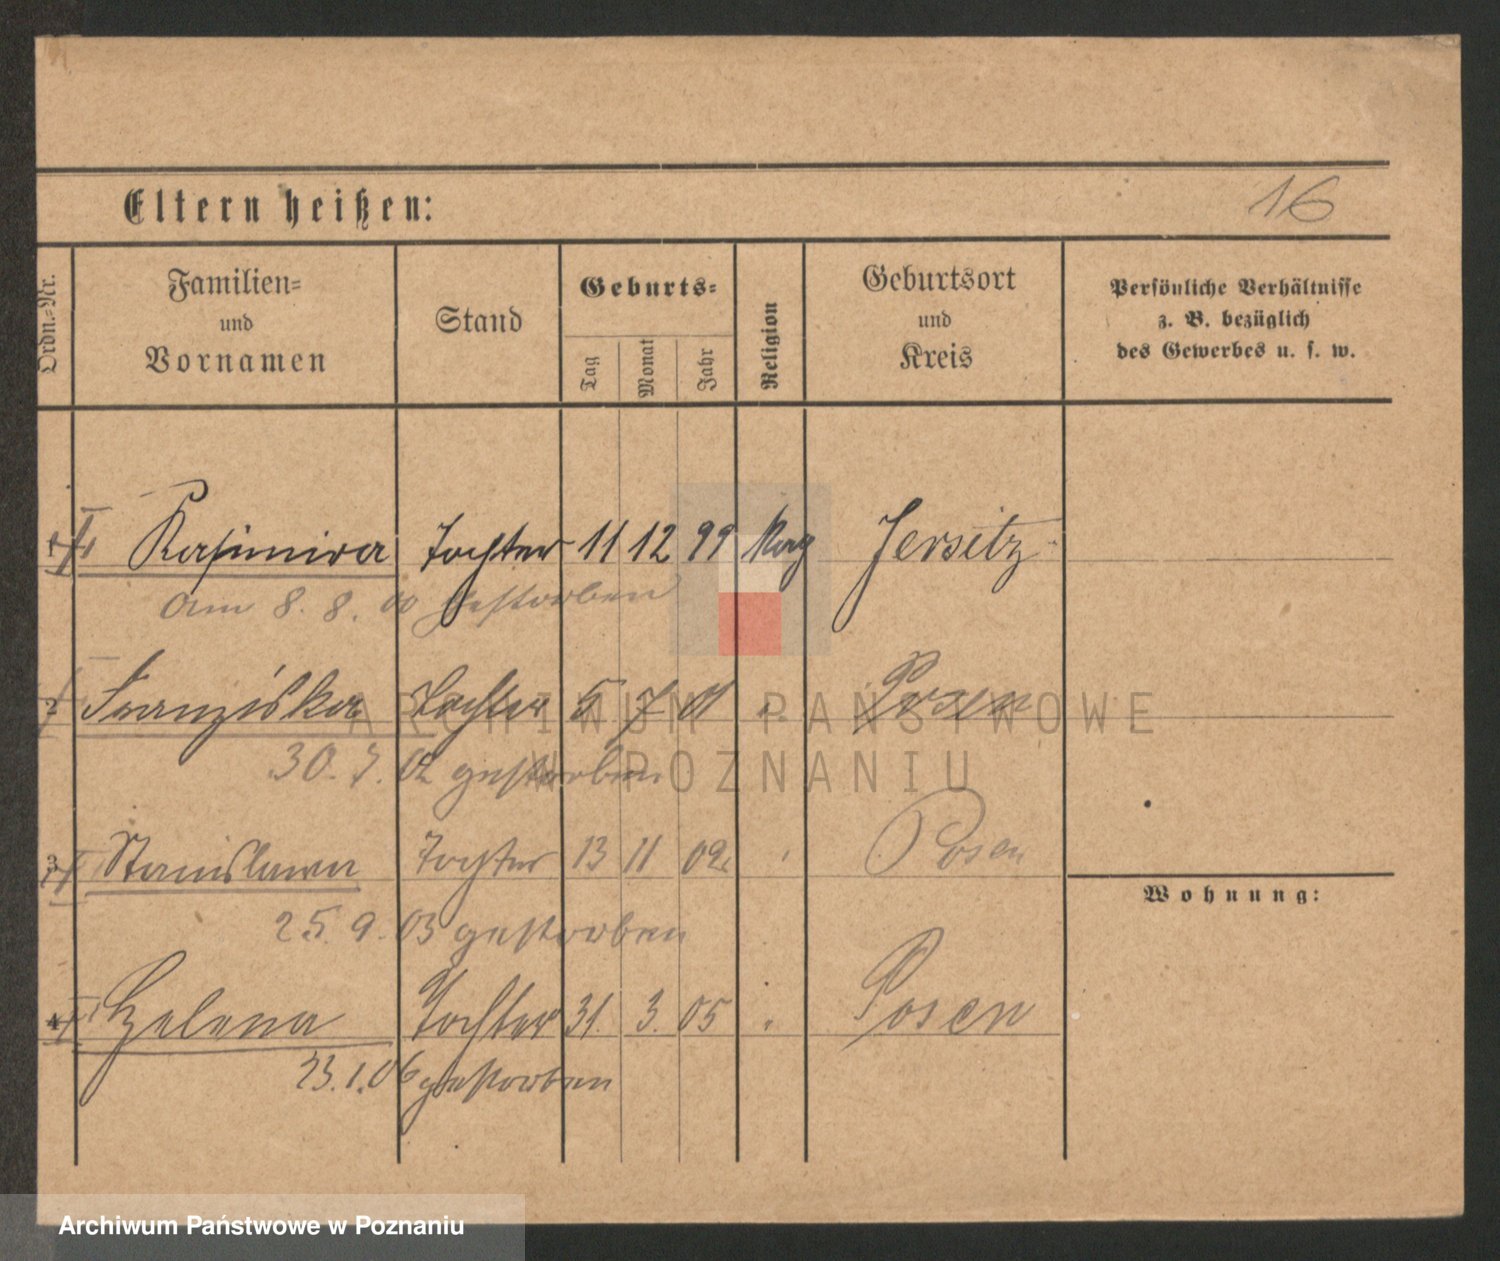 Eltern heißen:
16
Ordn.-Nr.
Familien-
und
Vornamen
Stand
Geburts-
Tag
Monat
Jahr
Religion
Geburtsort
und
Kreis
Persönliche Verhältnisse
z. B. bezüglich
des Gewerbes u. s. w.
1 Kasimira Tochter 11 12 99 Jersitz
am 8. 8. 00 gestorben
2 Franziska Tochter 5 7 01 " Posen
30. 7. 02 gestorben
3 Stanislawa Tochter 13 11 02 " Posen
Wohnung:
25. 9. 03 gestorben
4 Helena Tochter 31. 3. 05 " Posen
23. 1. 06 gestorben
ARCHIWUM PAŃSTWOWE
W POZNANIU
Archiwum Państwowe w Poznaniu